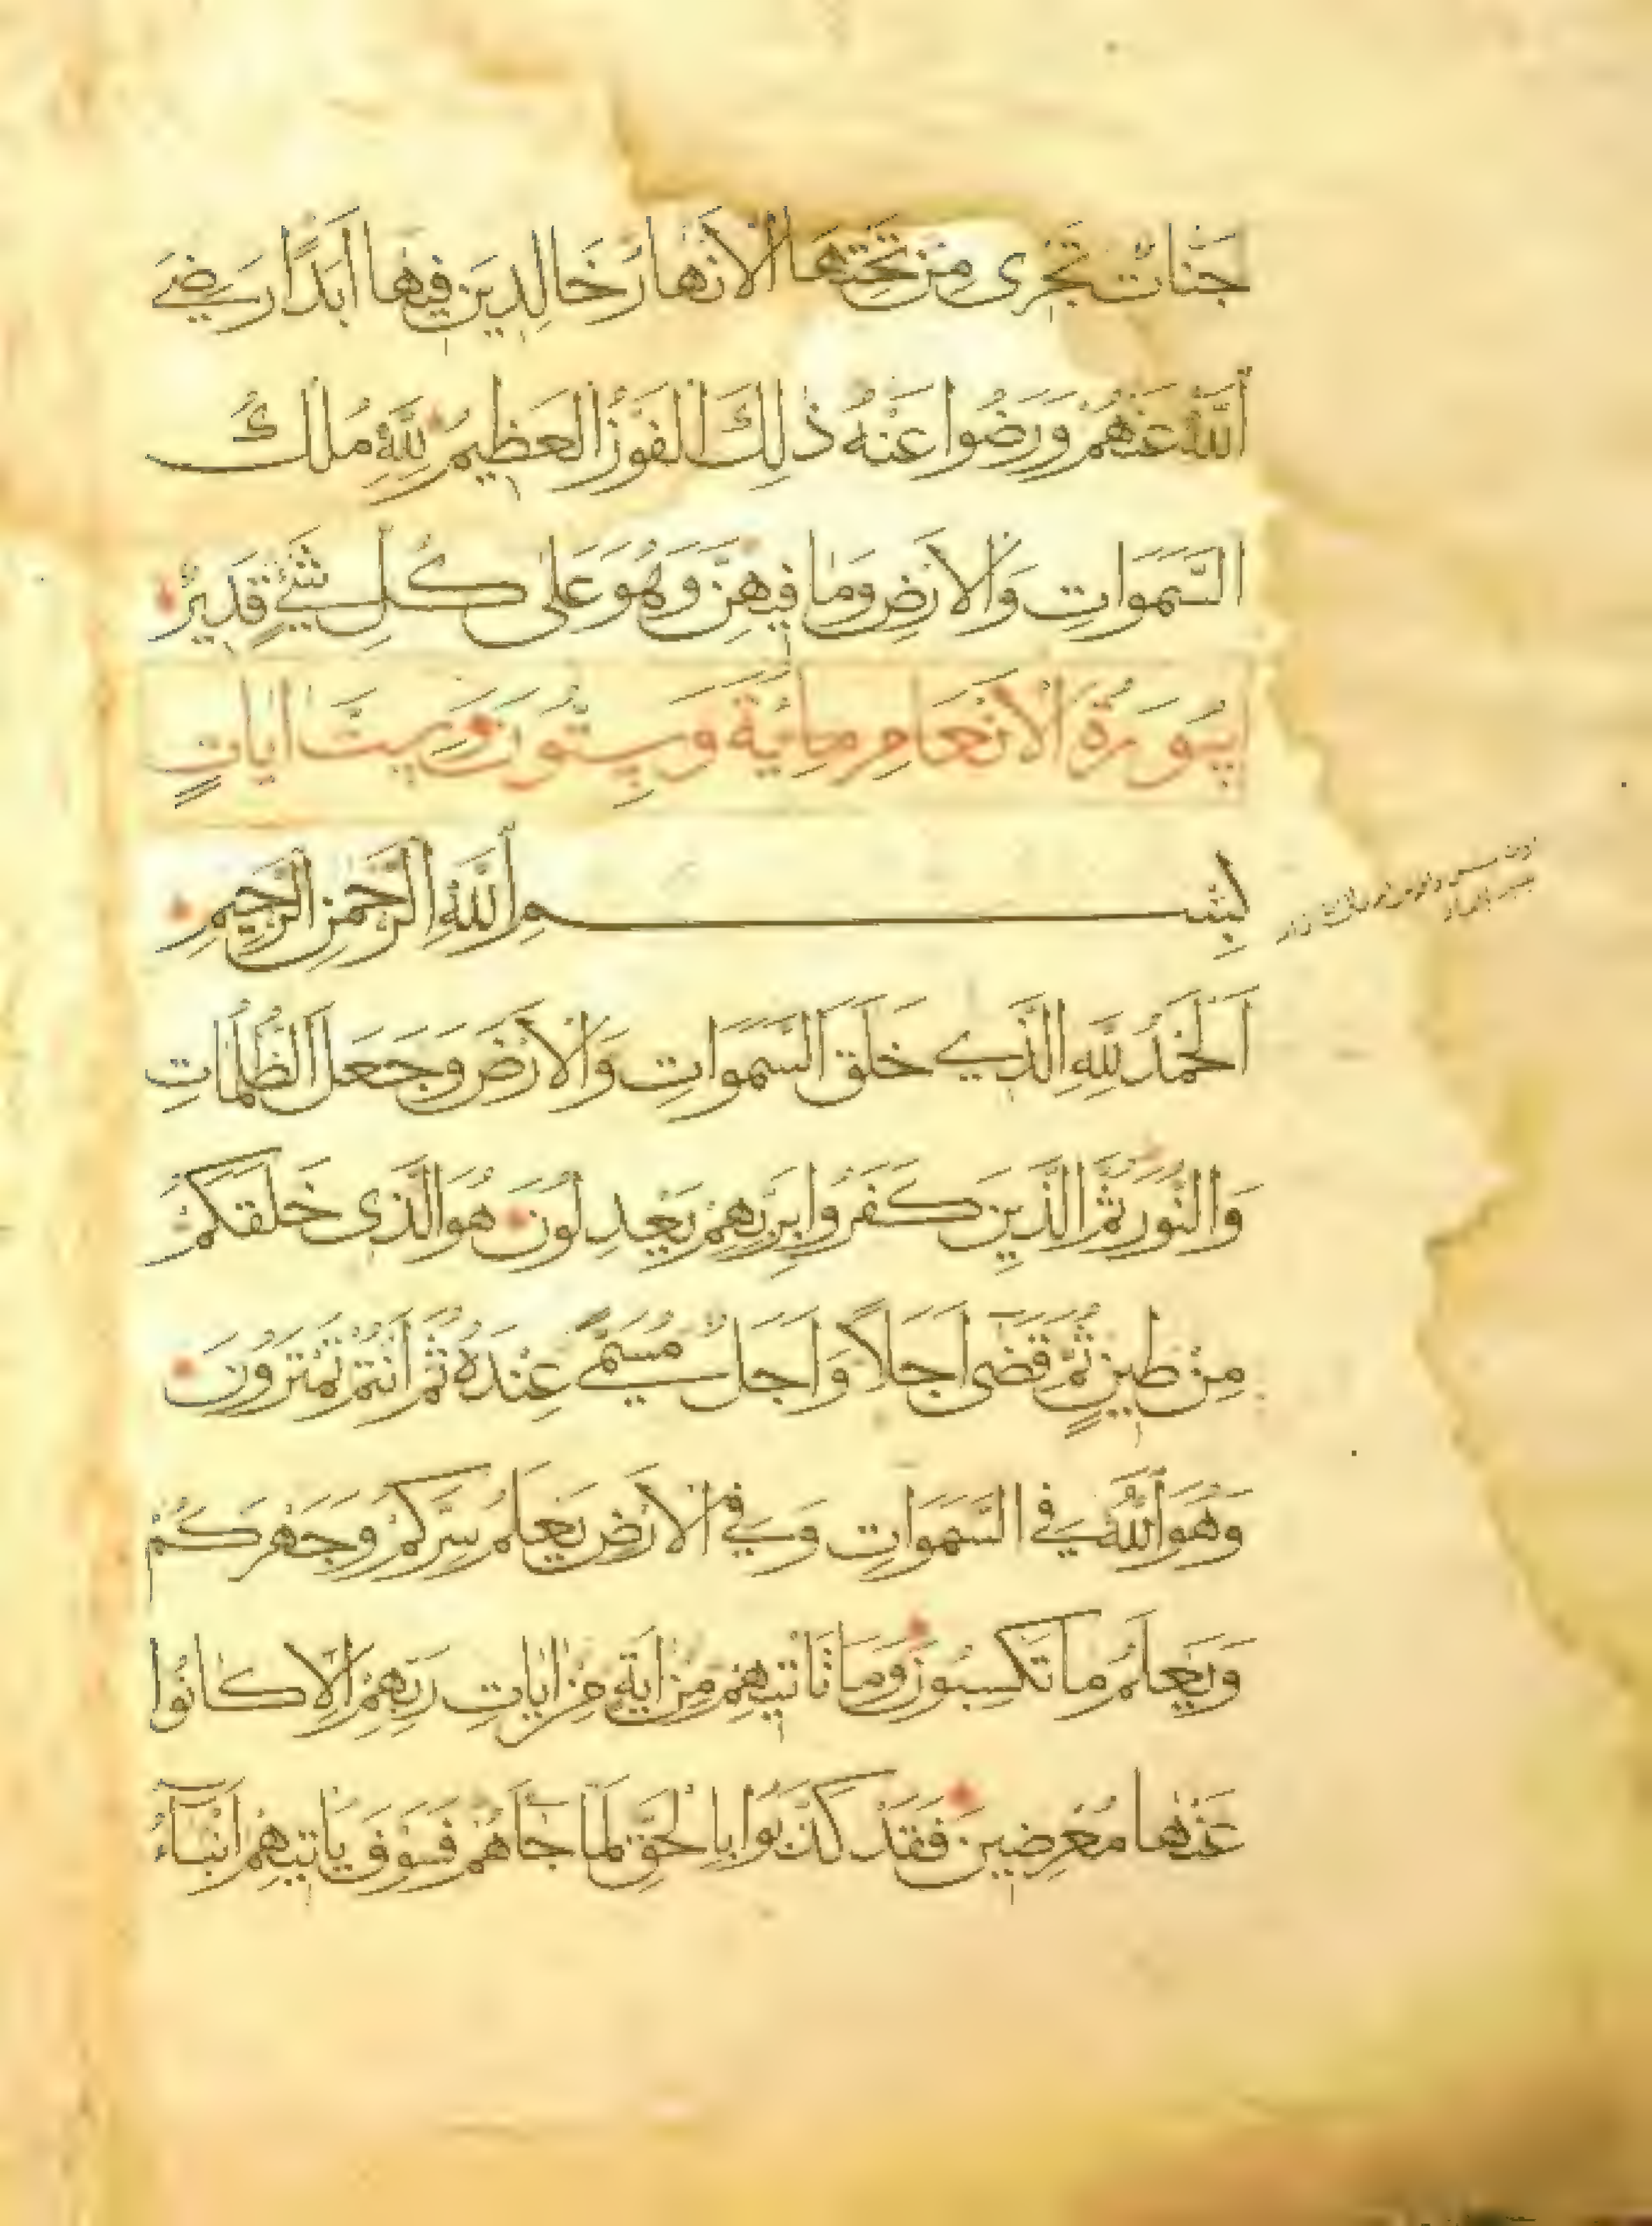 جَنَّاتٌ تَجْرِى مِنْ تَحْتِهَا الْاَنْهَارُ خَالِدِينَ فِيهَا اَبَدًا رَضِيَ
اللّٰهُ عَنْهُمْ وَرَضُوا عَنْهُ ذٰلِكَ الْفَوْزُ الْعَظِيمُ لِلّٰهِ مُلْكُ
السَّمَوَاتِ وَالْاَرْضِ وَمَا فِيهِنَّ وَهُوَ عَلٰى كُلِّ شَيْءٍ قَدِيرٌ
سُورَةُ الْاَنْعَامِ مِائَةٌ وَسِتُّونَ وَسِتُّ اٰيَاتٍ
بِسْمِ اللّٰهِ الرَّحْمٰنِ الرَّحِيمِ
اَلْحَمْدُ لِلّٰهِ الَّذِي خَلَقَ السَّمَوَاتِ وَالْاَرْضَ وَجَعَلَ الظُّلُمَاتِ
وَالنُّورَ ثُمَّ الَّذِينَ كَفَرُوا بِرَبِّهِمْ يَعْدِلُونَ هُوَ الَّذِى خَلَقَكُمْ
مِنْ طِينٍ ثُمَّ قَضٰى اَجَلًا وَاَجَلٌ مُسَمًّى عِنْدَهُ ثُمَّ اَنْتُمْ تَمْتَرُونَ
وَهُوَ اللّٰهُ فِي السَّمَوَاتِ وَفِي الْاَرْضِ يَعْلَمُ سِرَّكُمْ وَجَهْرَكُمْ
وَيَعْلَمُ مَا تَكْسِبُونَ وَمَا تَاْتِيهِمْ مِنْ اٰيَةٍ مِنْ اٰيَاتِ رَبِّهِمْ اِلَّا كَانُوا
عَنْهَا مُعْرِضِينَ فَقَدْ كَذَّبُوا بِالْحَقِّ لَمَّا جَاۤءَهُمْ فَسَوْفَ يَاْتِيهِمْ اَنْبَاۤءُ